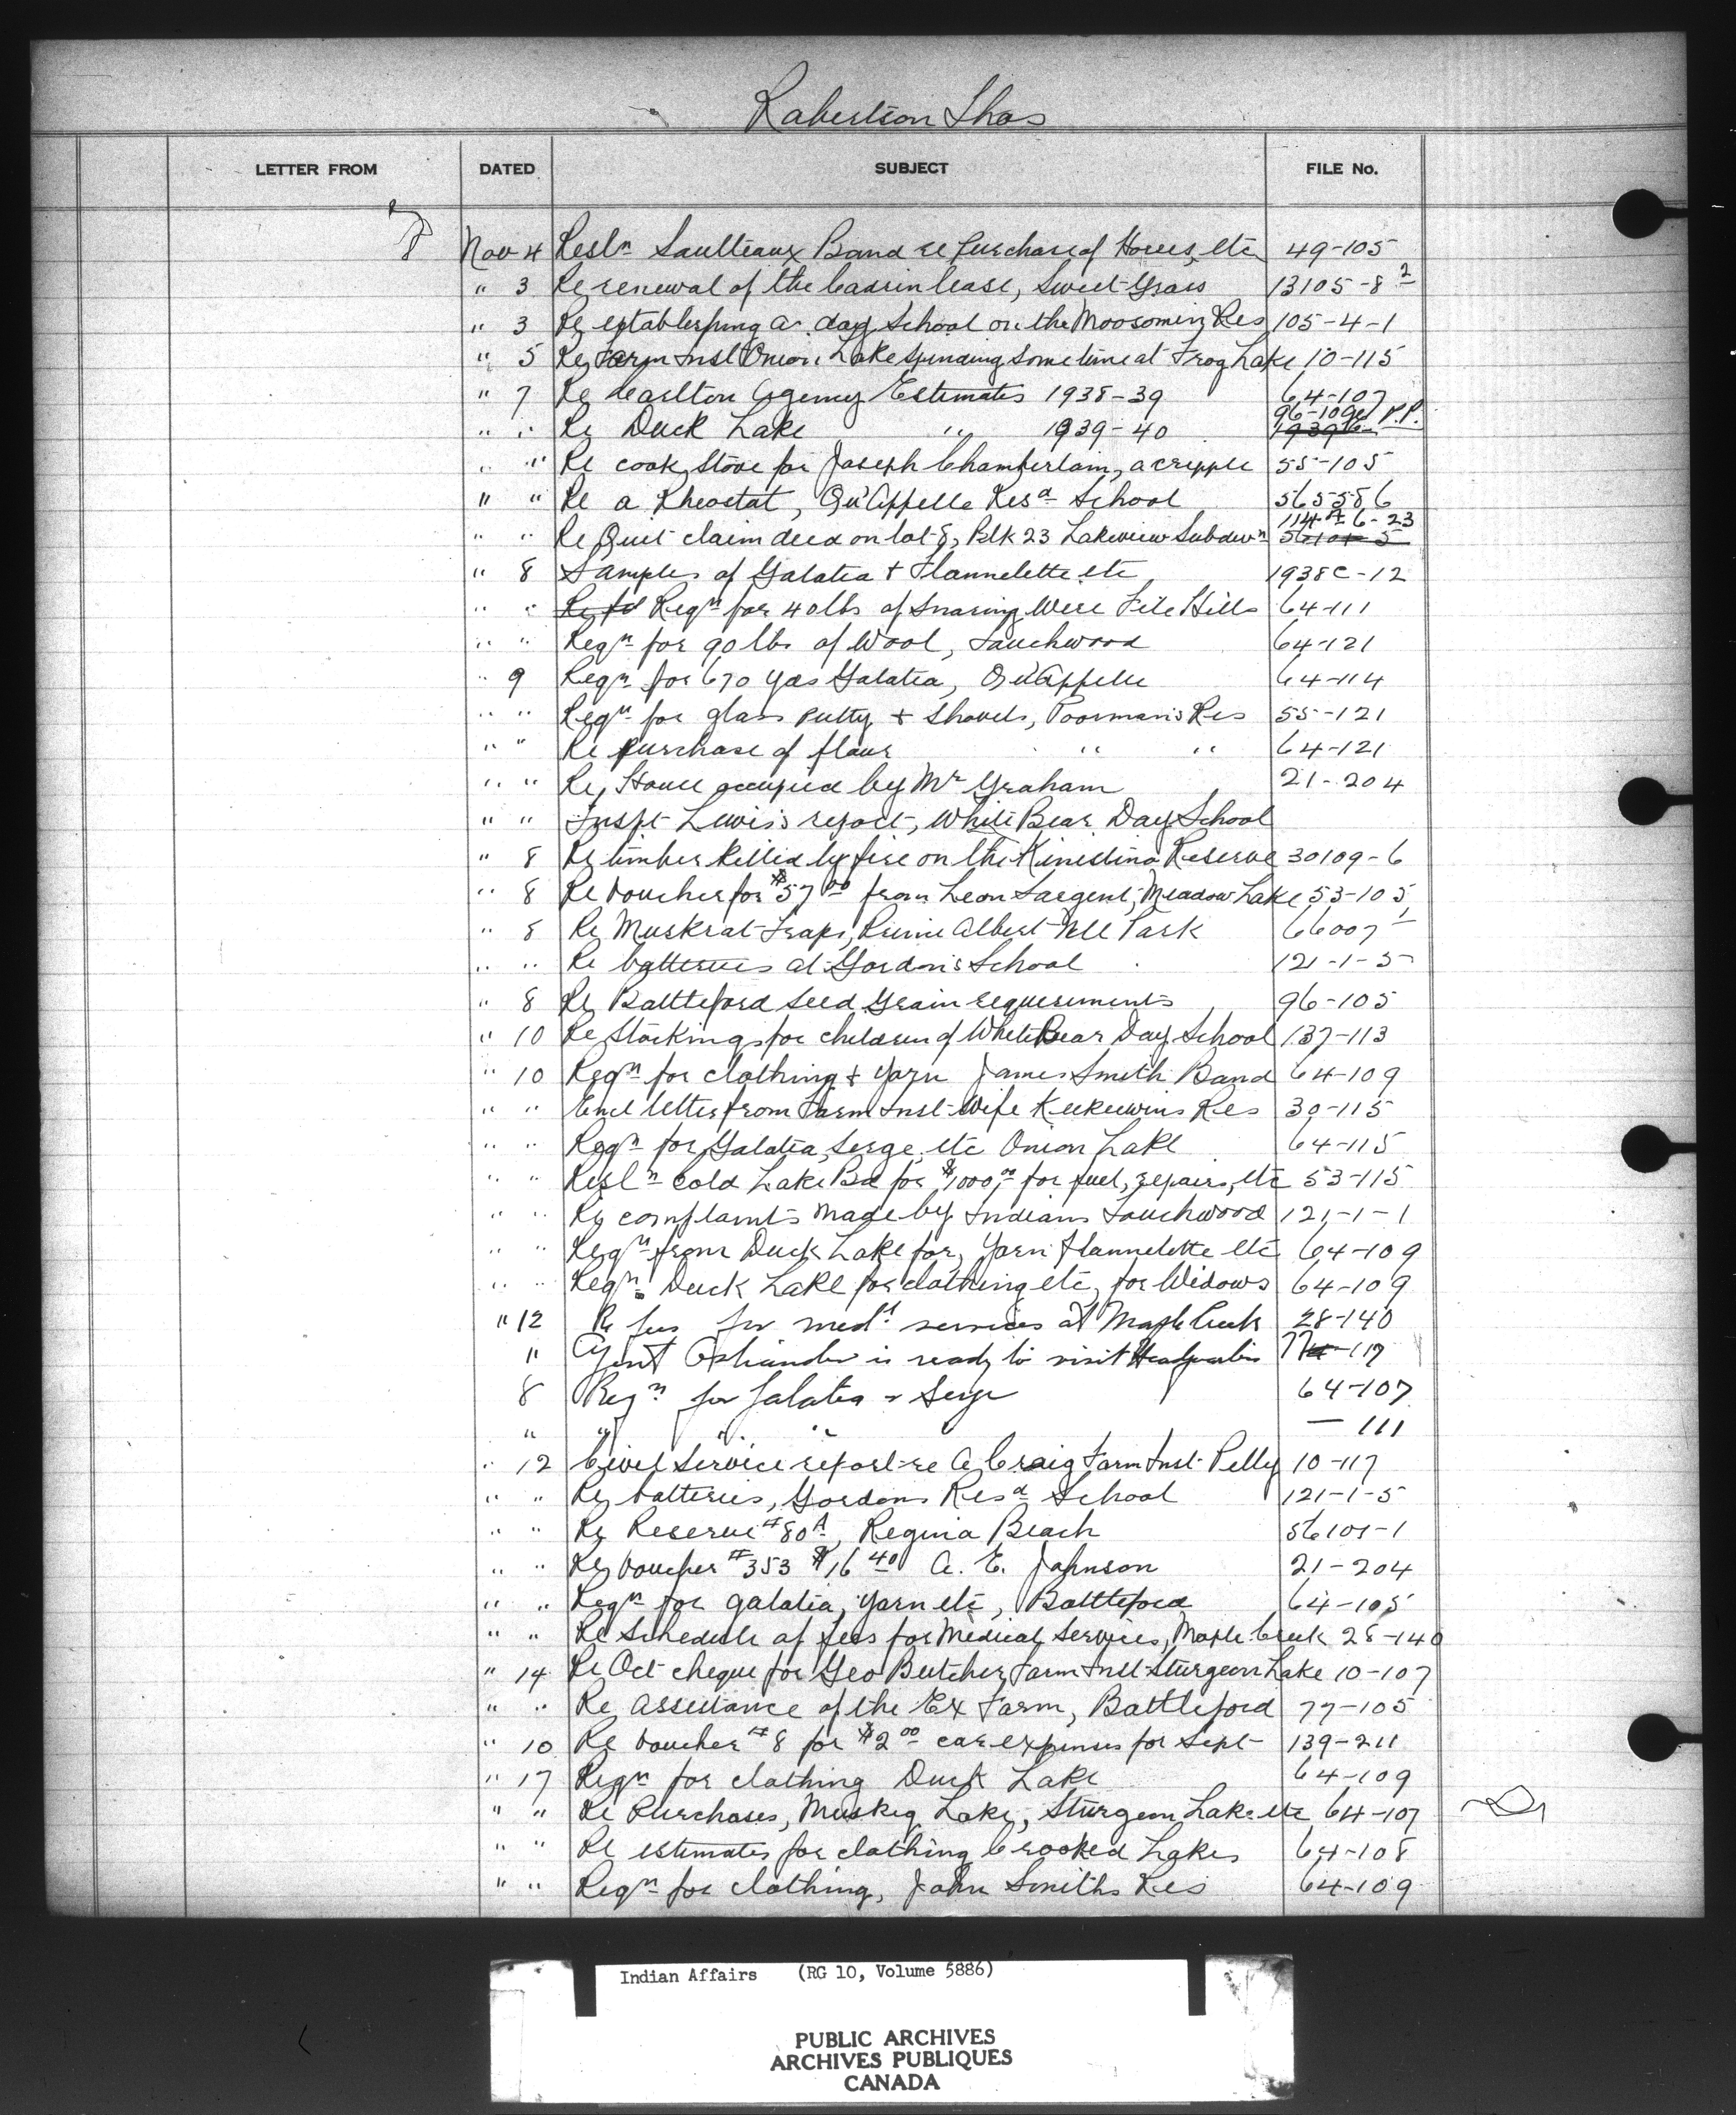 Robertson Thos
LETTER FROM DATED SUBJECT FILE No.
Nov 4 Resln Saulteaux Band re purchase of Horses, etc 49-105
" 3 Re renewal of the lease, Sweet Grass 13105-8 2
" 3 Re establishing a day School on the Moosomin Res 105-4-1
" 5 Re Farm Inst Onion Lake spending some time at Frog Lake 10-115
" 7 Re Carlton Agency Estimates 1938-39 64-107
" " Re Duck Lake " 1939-40 96-109 P.P.
" " Re cook stove for Joseph Chamberlain, a cripple 55-105
" " Re a Rheostat, Qu'Appelle Resd School 565-5-86
" " Re Quit claim deed on lot 8, Blk 23 Lakeview Subdivn 114A 6-23
" 8 Samples of Galatea + Flannelette etc 1938C-12
" " Reqn for 40 lbs of Snaring Wire File Hills 64-111
" " Reqn for 90 lbs of Wool, Touchwood 64-121
" 9 Reqn for 670 yds Galatea, Qu'Appelle 64-114
" " Reqn for glass putty + Shovels, Poorman's Res 55-121
" " Re purchase of flour " " 64-121
" " Re House occupied by Mr Graham 21-204
" " Inspt Lewis's report, White Bear Day School
" 8 Re timber killed by fire on the Kinistino Reserve 30109-6
" 8 Re Voucher for $57 00 from Leon Sargent, Meadow Lake 53-105
" 8 Re Muskrat Traps, Prince Albert Ntl Park 66007 1
" " Re batteries at Gordon's School 121-1-5
" 8 Re Battleford Seed Grain requirements 96-105
" 10 Re Stockings for children of White Bear Day School 137-113
" 10 Reqn for clothing + Yarn James Smith Band 64-109
" " Encl letter from Farm Inst Wife Keekewins Res 30-115
" " Reqn for Galatea, Serge, etc Onion Lake 64-115
" " Resln Cold Lake Bd for $1000,00 for fuel, repairs, etc 53-115
" " Re complaints made by Indians Touchwood 121-1-1
" " Reqn from Duck Lake for, Yarn flannelette etc 64-109
" " Reqn Duck Lake for clothing etc, for Widows 64-109
" 12 Re fees for medl services at Maple Creek 28-140
" Agent Ostrander is ready to visit Headquarters 77-117
8 Reqn for Galatea & Serge 64-107
" " " " — 111
" 12 Civil Service report re A. Craig Farm Inst Pelly 10-117
" " Re batteries, Gordons Resd School 121-1-5
" " Re Reserve #80A, Regina Beach 56101-1
" " Re Voucher #353 $16 40 A. E. Johnson 21-204
" " Reqn for galatea, yarn etc, Battleford 64-105
" " Re Schedule of fees for Medical Services, Maple Creek 28-140
" 14 Re Oct cheque for Geo Butcher, Farm Inst Sturgeon Lake 10-107
" " Re assistance of the Ex Farm, Battleford 77-105
" 10 Re Voucher #8 for $2 00 car expenses for Sept 139-211
" 17 Reqn for clothing Duck Lake 64-109
" " Re Purchases, Muskeg Lake, Sturgeon Lake etc 64-107
" " Re estimates for clothing Crooked Lakes 64-108
" " Reqn for clothing, John Smiths Res 64-109
Indian Affairs (RG 10, Volume 5886)
PUBLIC ARCHIVES
ARCHIVES PUBLIQUES
CANADA